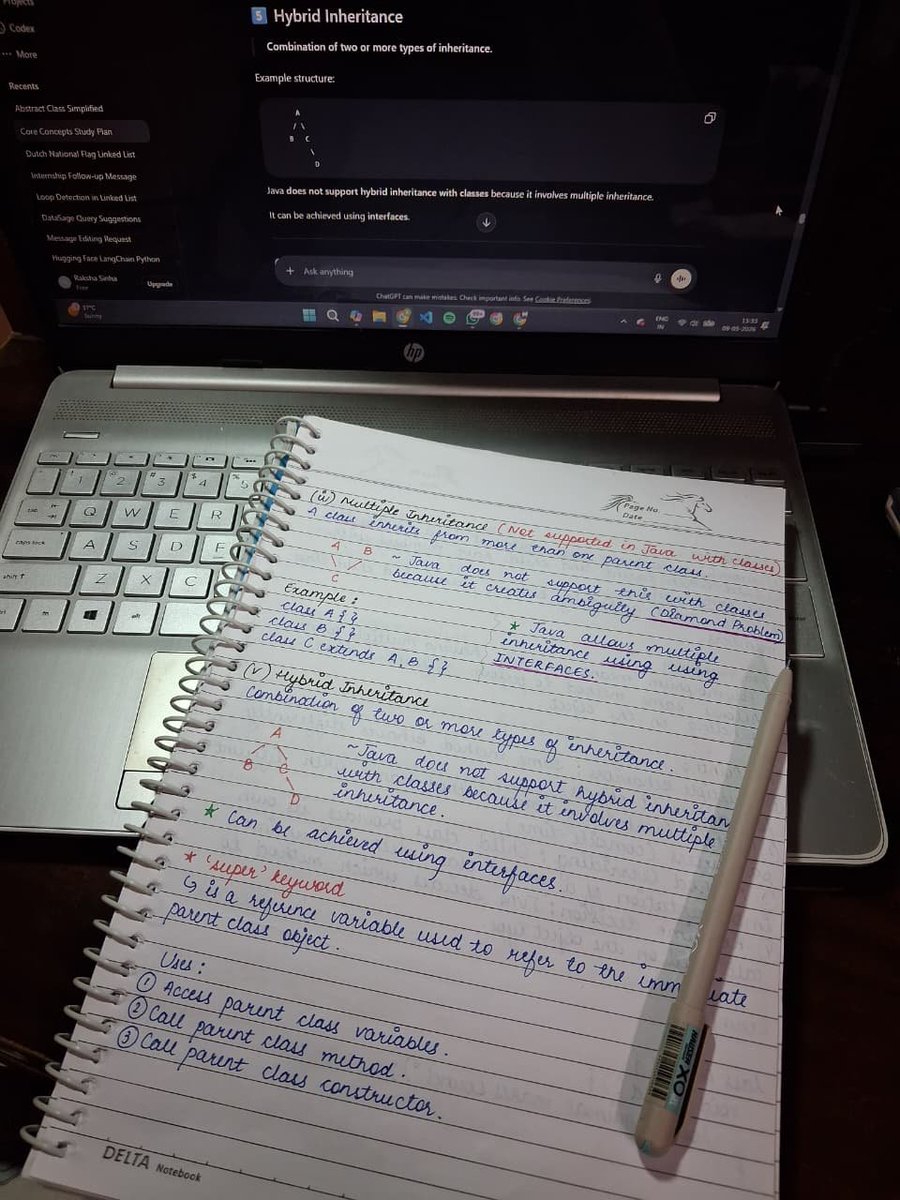 Projects
Codex
More
Recents
Abstract Class Simplified
Core Concepts Study Plan
Dutch National Flag Linked List
Internship Follow-up Message
Loop Detection in Linked List
DataSage Query Suggestions
Message Editing Request
Hugging Face LangChain Python
Raksha Sinha
Free
Upgrade
5 Hybrid Inheritance
Combination of two or more types of inheritance.
Example structure:
A
/ \
B C
\
D
Java does not support hybrid inheritance with classes because it involves multiple inheritance.
It can be achieved using interfaces.
+ Ask anything
ChatGPT can make mistakes. Check important info. See Cookie Preferences.
Sunny
ENG
IN
hp
1 2 3 4 5
Q W E R
caps lock A S D F
shift Z X C
fn alt
Page No.
Date
Multiple Inheritance (Not supported in Java with classes)
A class inherits from more than one parent class.
A B
C
~ Java does not support this with classes
because it creates ambiguity (Diamond Problem)
Example :
class A { }
class B { }
class C extends A, B { }
* Java allows multiple
inheritance using using
INTERFACES.
(v) Hybrid Inheritance
Combination of two or more types of inheritance.
A
B C
D
~ Java does not support hybrid inheritan
with classes because it involves multiple
inheritance.
* Can be achieved using interfaces.
* 'super' keyword
↳ is a reference variable used to refer to the immediate
parent class object.
Uses :
① Access parent class variables.
② Call parent class method.
③ Call parent class constructor.
XO
DELTA Notebook